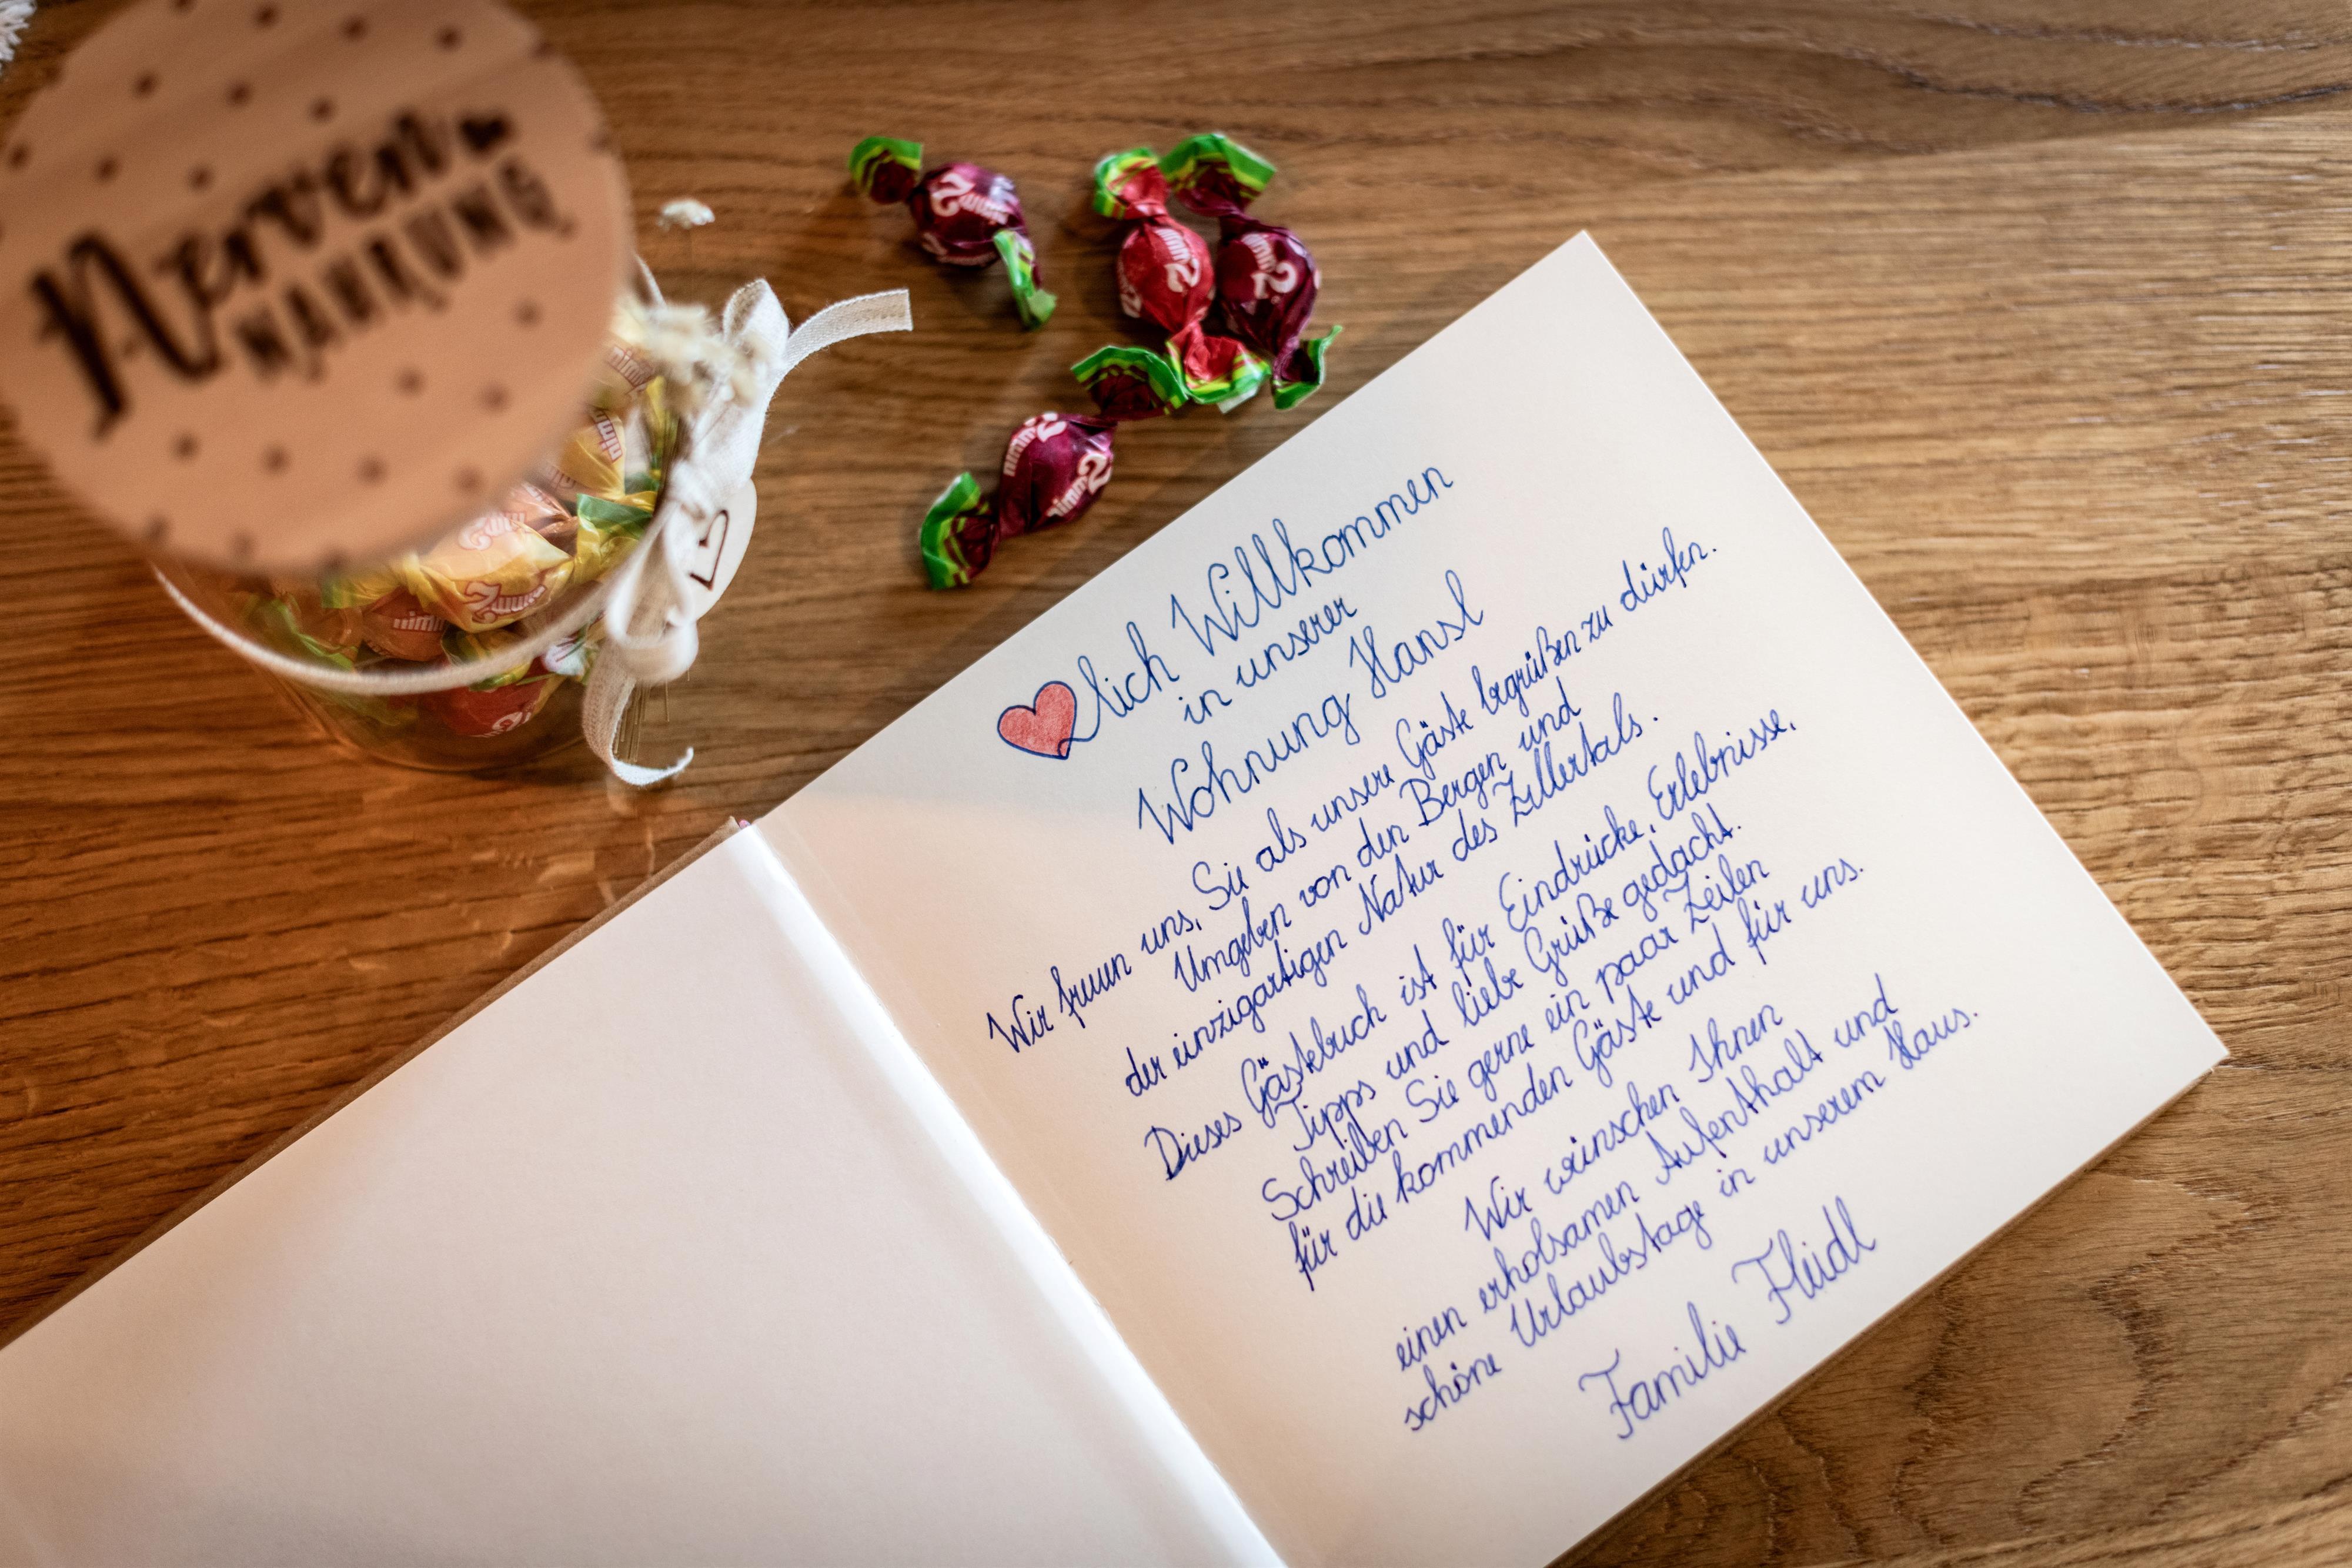 Nerven
NAHRUNG
nimm2
nimm2
nimm2
nimm2
nimm2
nimm2
lich Willkommen
in unserer
Wohnung Hansl
Wir freuen uns, Sie als unsere Gäste begrüßen zu dürfen.
Umgeben von den Bergen und
der einzigartigen Natur des Zillertals.
Dieses Gästebuch ist für Eindrücke, Erlebnisse,
Tipps und liebe Grüße gedacht.
Schreiben Sie gerne ein paar Zeilen
für die kommenden Gäste und für uns.
Wir wünschen Ihnen
einen erholsamen Aufenthalt und
schöne Urlaubstage in unserem Haus.
Familie Fleidl